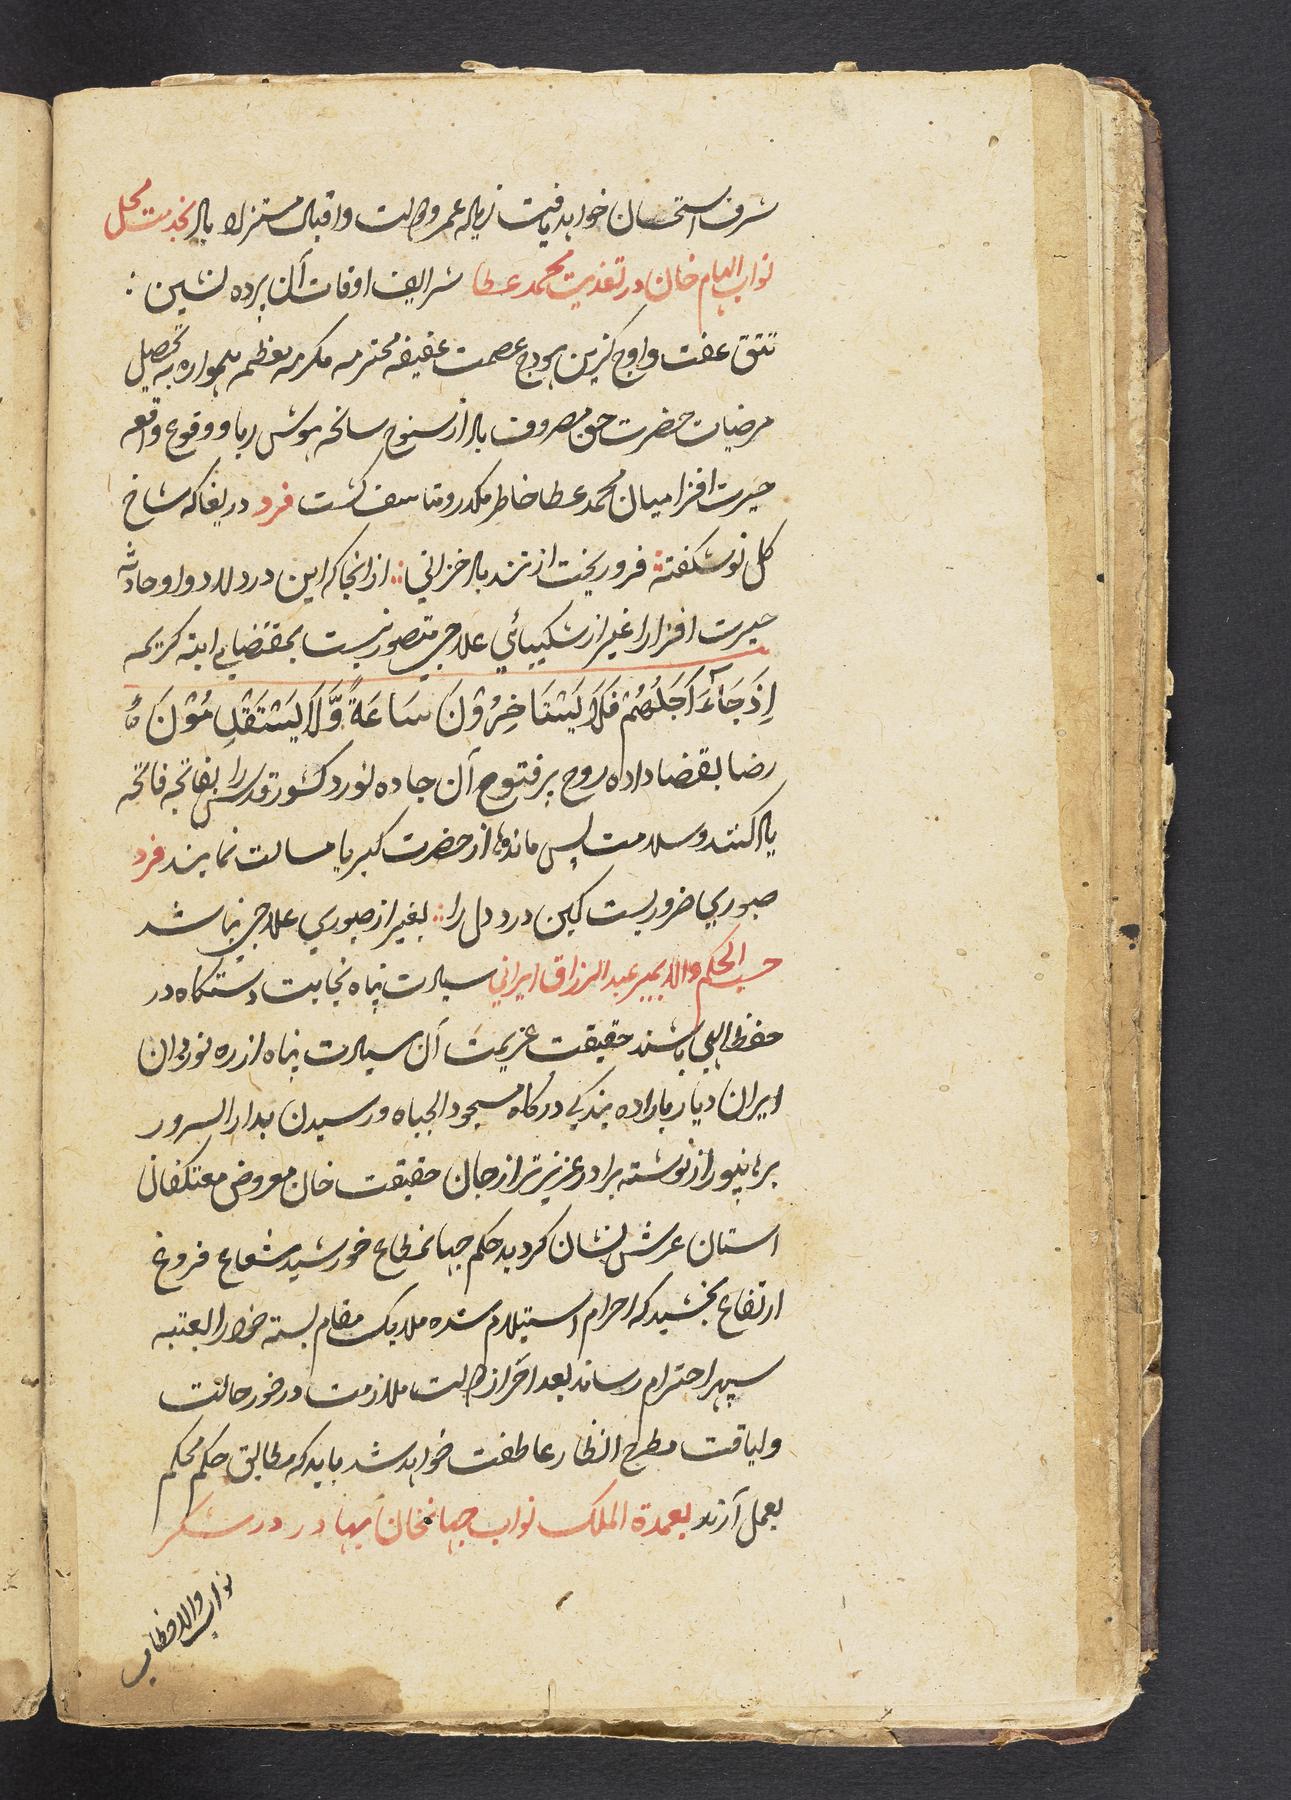 شرف استحسان خواهد یافت زیاده عمر و دولت و اقبال مستزاد باد بخدمت محل
نواب الهام خان در تعذیت محمد عطا شرایف اوقات آن پرده نشین :
تتق عفت و اوج گزین هودج عصمت عفیفه محترمه مکرمه معظمه همواره به تحصیل
مرضیات حضرت حق مصروف باد از سنوح سانحه هوش ربا و وقوع واقعه
حیرت افزا میان محمد عطا خاطر مکدر و متاسف کشت فرد دریغا که شاخ
کل نو شکفته فرو ریخت از تند باد خزانی : ازانجا که این درد لادوا و حادثه
حیرت افزا را غیر از شکیبائی علاجی متصور نیست بمقتضای ایته کریمه
اِذَ جَآءَ اَجَلُهُمْ فَلَا یَسْتَاخِرُوْنَ سَاعَةً وَّلَا یَسْتَقْدِمُوْنَ
رضا بقضا داده روح پر فتوح آن جاده نورد کشور قدس را بفاتحه فائحه
یاد کنند و سلامت پس ماندها از حضرت کبریا مسالت نمایند فرد
صبوری ضروریست کین درد دل را : بغیر از صبوری علاجی نباشد
حسب الحکم والا بمیر عبد الرزاق ایرانی سیادت پناه نجابت دستکاه در
حفظ الهی باشند حقیقت عزیمت آن سیادت پناه از ره نوردان
ایران دیار باراده بندکی درکاه مسجود الجباه و رسیدن بدار السرور
برهانپور از نوشته برادر عزیزتر از جان حقیقت خان معروض معتکفان
استان عرش نشان کردید حکم جهانمطاع خورشید شعاع فروغ
ارتفاع بخشید که احرام استیلام سده ملایک مقام بسته خود را بعتبه
سپهر احترام رساند بعد احراز دولت ملازمت در خور حالت
و لیاقت مطرح انظار عاطفت خواهد شد باید که مطابق حکم محکم
بعمل آرند بعمدة الملک نواب جهانخان بهادر در شکر
نواب والا خطاب